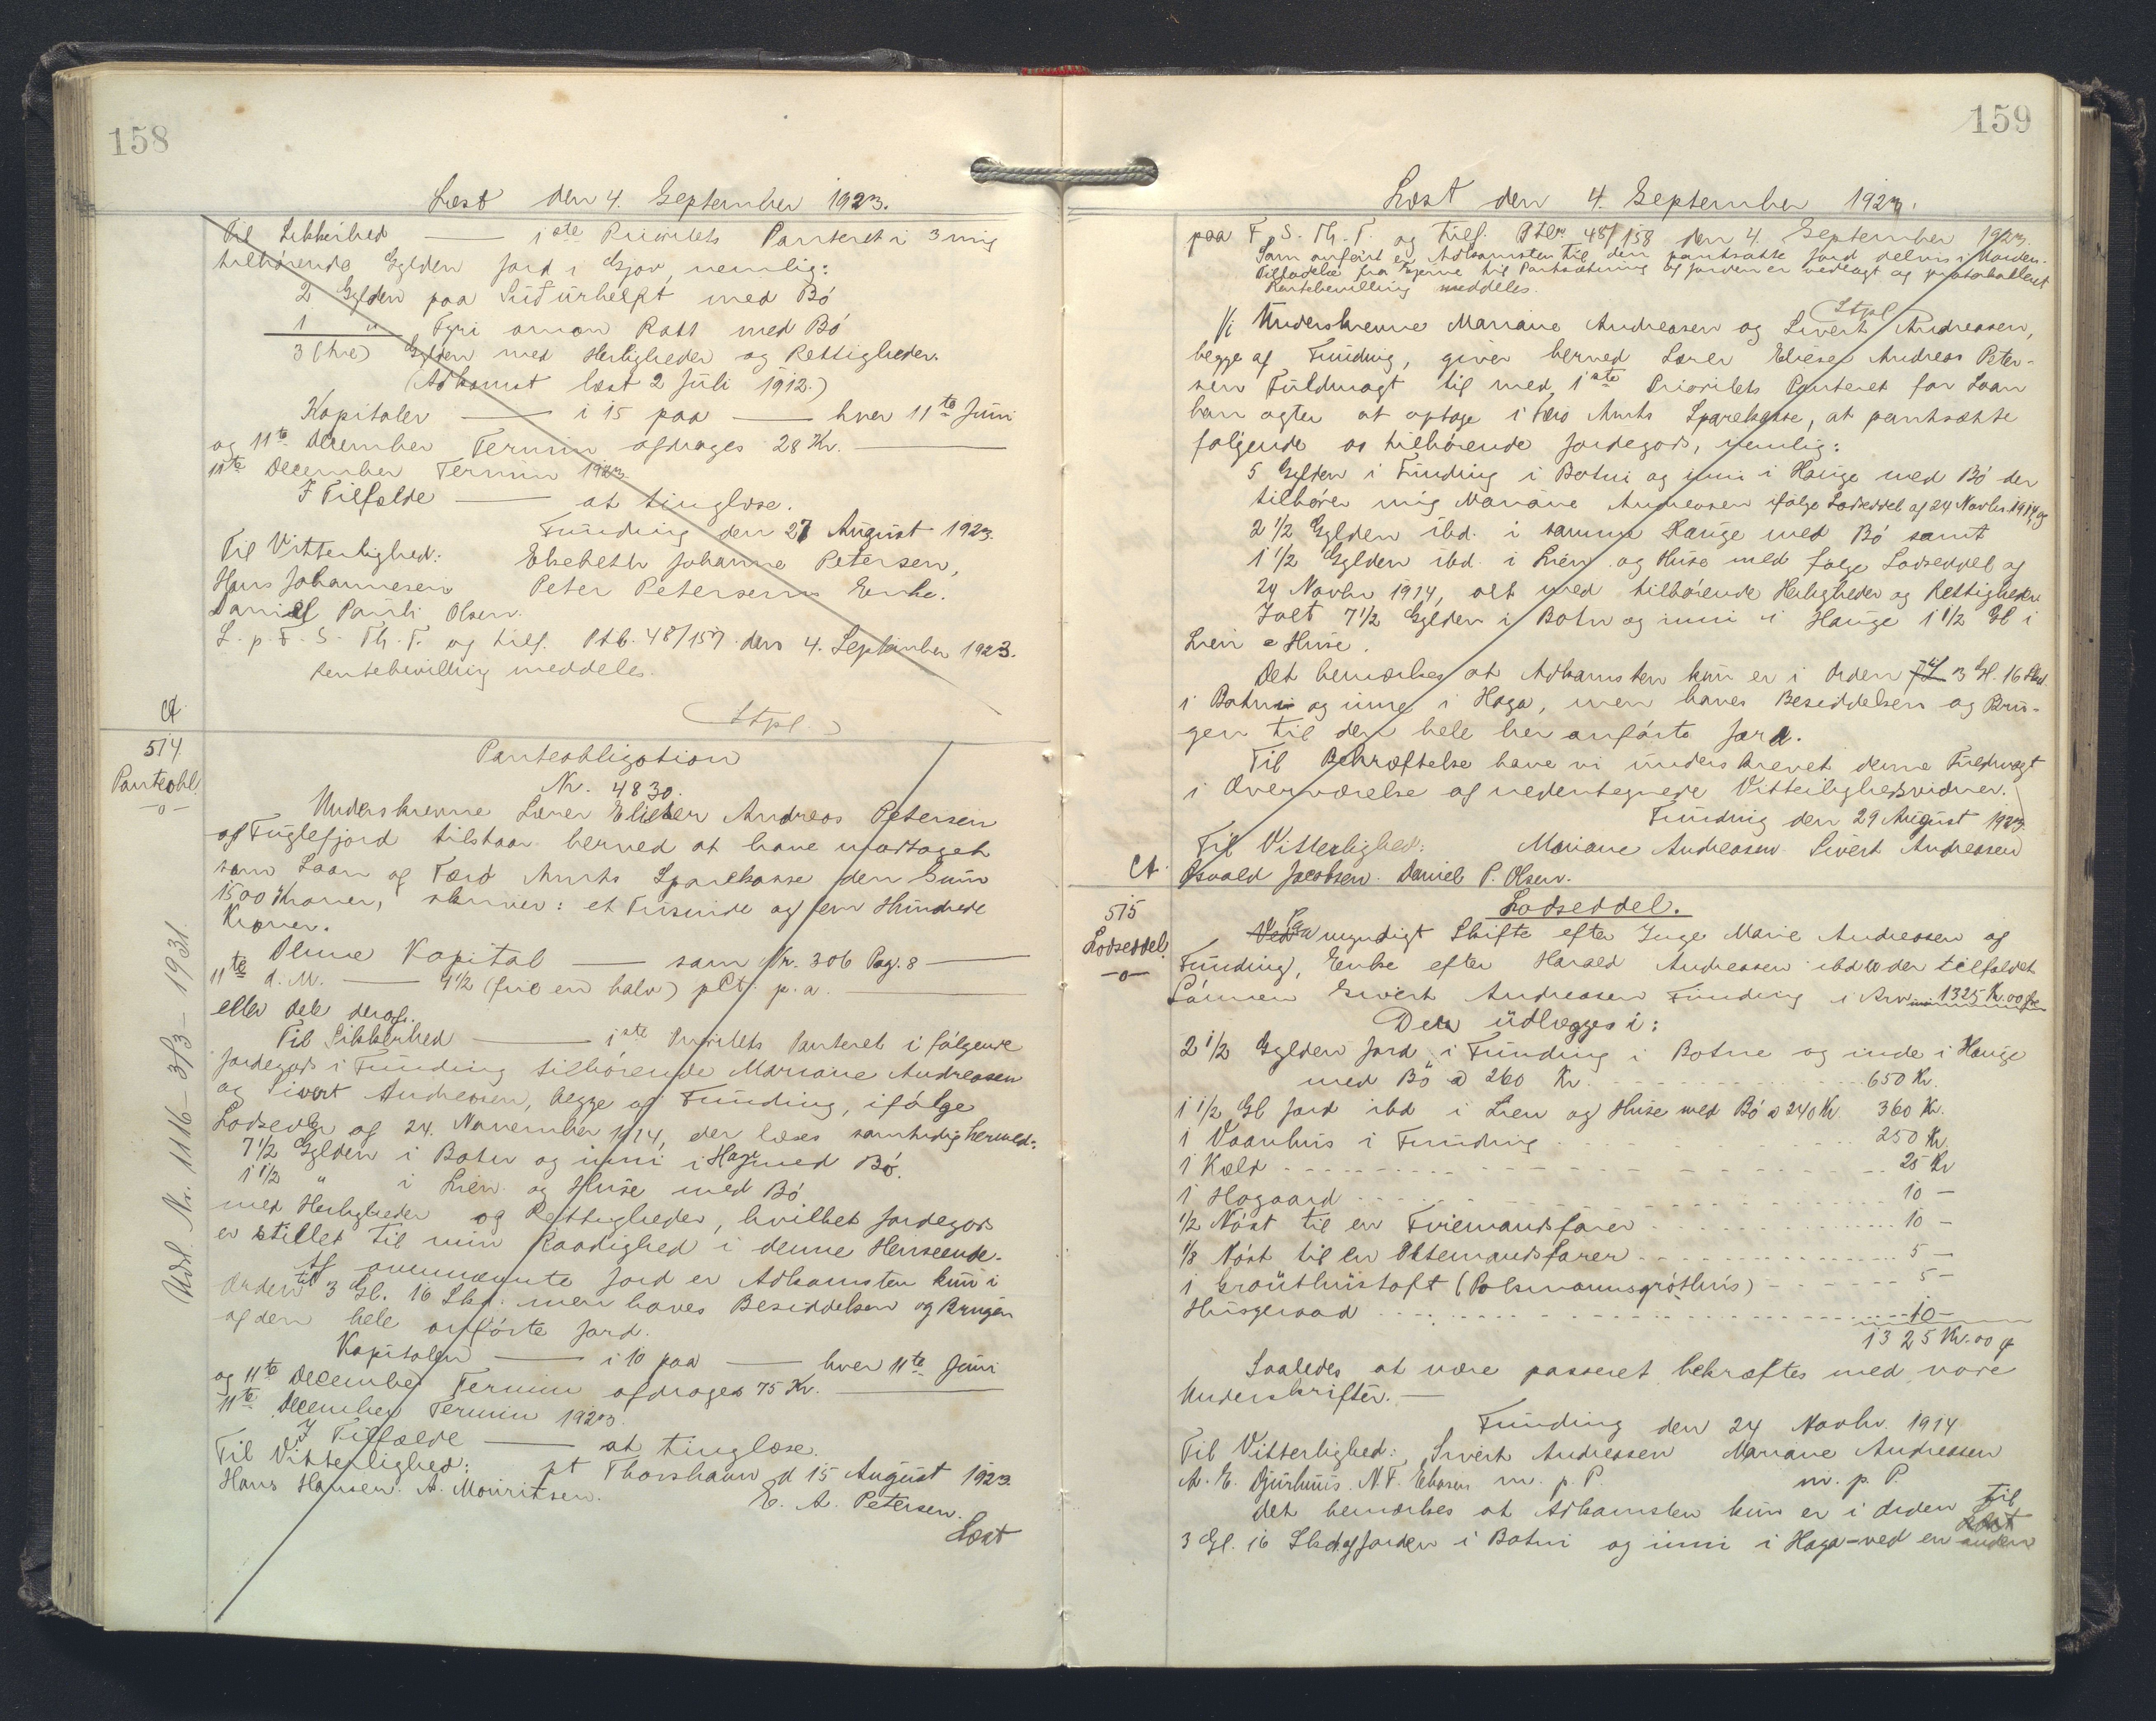 158
Læst den 4. September 1923.
Til Sikkerhed —— 1ste Prioritets Panteret i 3 mig
tilhørende Gylden Jord i Gjov, nemlig:
2 Gylden paa Suðurhelft med Bö
1 " Fyri oman Rætt med Bö
3 (tre) Gylden med Herligheder og Rettigheder.
(Adkomst læst 2 Juli 1912.)
Kapitalen —— i 15 paa —— hver 11te Juni
og 11te December Termin afdrages 28 Kr. ——
11te December Termin 1923
I Tilfælde —— at tinglæse.
Funding den 27 August 1923.
Til Vitterlighed: Elsebeth Johanne Petersen,
Hans Johannesen Peter Petersens Enke.
Daniel Pauli Olsen.
L. p. F. S. Th. T. og tilf. Ptb. 48/157 den 4. September 1923.
Rentebevilling meddeles.
Stpl.
Ct.
514
Panteobl.
-o-
Panteobligation
Nr. 4830.
Underskrevne Lærer Elieser Andreas Petersen
af Fuglefjord tilstaar herved at have modtaget
som Laan af Færø Amts Sparekasse den Sum
1500 Kroner, skriver: et Tusinde og fem Hundrede
Kroner.
Denne Kapital —— som Nr. 306 Pag. 8 ——
11te d. M. —— 4 1/2 (fire en halv) pCt. p. a. ——
eller dele deraf.
Til Sikkerhed —— 1ste Prioritets Panteret i følgende
Jordegods i Funding tilhørende Mariane Andreasen
og Sivert Andreasen, begge af Funding, ifølge
Lodsedler af 24. November 1914, der læses samtidig hermed:
7 1/2 Gylden i Botni og inni i Haga med Bö.
1 1/2 " i Lien og Huse med Bö
med Herligheder og Rettigheder, hvilket Jordegods
er stillet til min Raadighed i denne Henseende.
Af ovennævnte Jord er Adkomsten kun i
Orden til 3 Gl. 16 Skd. men haves Besiddelsen og Brugen
af den hele anførte Jord.
Kapitalen —— i 10 paa —— hver 11te Juni
og 11te December Termin afdrages 75 Kr. ——
11te December Termin 1923.
I Tilfælde —— at tinglæse.
Til Vitterlighed: pt Thorshavn d 15 August 1923.
Hans Hansen. A. Mouritsen. E. A. Petersen.
Læst
Udsl. Nr. 1116 - 3/3 - 1931.
159
Læst den 4. September 1923.
paa F. S. Th. T. og tilf. Ptb. 48/158 den 4. September 1923.
Som anført er Adkomsten til den pantsatte Jord delvis i Uorden.
Tilladelse fra Ejerne til Pantsætning af Jorden er vedlagt og protokolleret
Rentebevilling meddeles.
Stpl.
1/1 Underskrevne Mariane Andreasen og Sivert Andreasen,
begge af Funding, giver herved Lærer Elieser Andreas Peter-
sen Fuldmagt til med 1ste Prioritets Panteret for Laan
han agter at optage i Færø Amts Sparekasse, at pantsætte
følgende os tilhørende Jordegods, nemlig:
5 Gylden i Funding i Botni og inni i Hauge med Bö der
tilhører mig Mariane Andreasen ifølge Lodseddel af 24 Novbr. 1914, og
2 1/2 Gylden ibd. i samme Hauge med Bö samt
1 1/2 Gylden ibd. i Lien og Huse med følge Lodseddel af
24 Novbr 1914, alt med tilhørende Herligheder og Rettigheder
Ialt 7 1/2 Gylden i Botni og inni i Hauge 1 1/2 Gl i
Lien & Huse.
Det bemærkes at Adkomsten kun er i Orden til 3 Gl. 16 Skd.
i Botni og inni i Haga, men haves Besiddelsen og Bru-
gen til den hele her anførte Jord.
Til Bekræftelse have vi underskrevet denne Fuldmagt
i Overværelse af nedentegnede Vitterlighedsvidner.
Funding den 29 August 1923
Til Vitterlighed: Mariane Andreasen Sivert Andreasen
Osvald Jacobsen. Daniel P. Olsen.
Ct.
515
Lodseddel.
-o-
Lodseddel.
Ved Samyndigt Skifte efter Inge Marie Andreasen af
Funding, Enke efter Harald Andreasen ibd er der tilfaldet
Sønnen Sivert Andreasen Funding i Arv 1325 Kr. 00 Øre
Der udlægges i:
2 1/2 Gylden Jord i Funding i Botne og inde i Hauge
med Bö a 260 Kr. 650 Kr.
1 1/2 Gl Jord ibd i Lien og Huse med Bö a 240 Kr. 360 Kr.
1 Vaanhus i Funding 250 Kr.
1 Kæld 25 Kr
1 Hagaard 10 —
1/2 Nöst til en Friemandsfarer 10 —
1/8 Nöst til en Ottemandsfarer 5 —
1 Grouthustoft (Palsmannsgróthús) 5 —
Husgeraad 10 —
1325 Kr. 00 Ø
Saaledes at være passeret bekræftes med vore
Underskrifter. —
Funding den 24 Novbr. 1914
Til Vitterlighed: Sivert Andreasen Mariane Andreasen
A. E. Djurhuus. N. F. Eliasen m. p. P. m. p. P.
Det bemærkes at Adkomsten kun er i Orden til
3 Gl. 16 Skd. af Jorden i Botni og inni i Haga - ved en anden